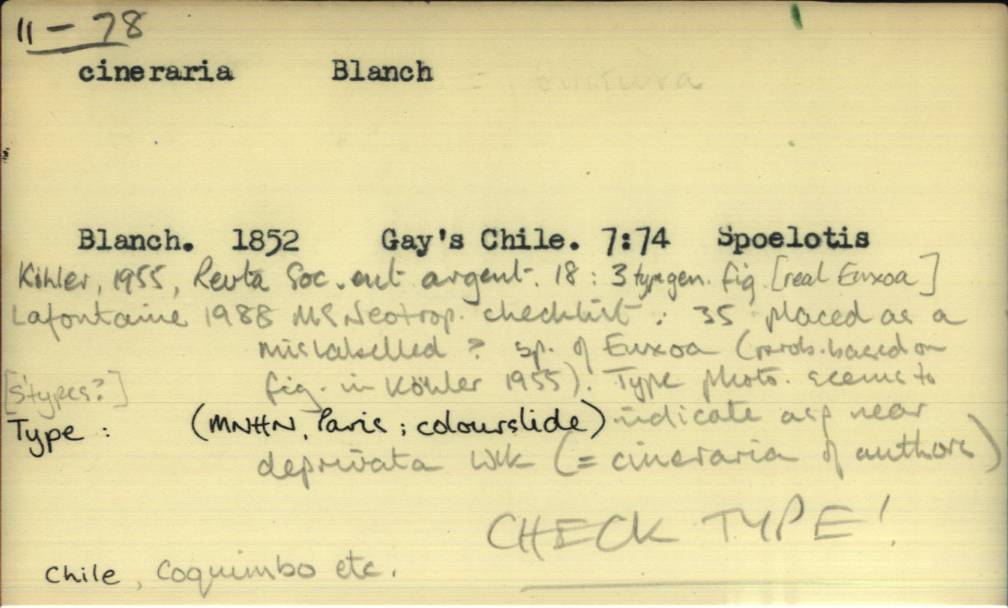 11-78
cineraria Blanch
Blanch. 1852 Gay's Chile. 7:74 Spoelotis
Köhler, 1955, Revta Soc. ent argent. 18: 3 type gen. fig. [real Euxoa]
Lafontaine 1988 MS Neotrop. checklist: 35 placed as a
mislabelled? sp. of Euxoa (prob. based on
fig. in Köhler 1955). Type photo. seems to
[S'types?]
Type: (MNHN, Paris; colourslide) indicate a sp near
deprivata Wlk (= cineraria of authors)
CHECK TYPE!
Chile, Coquimbo etc.